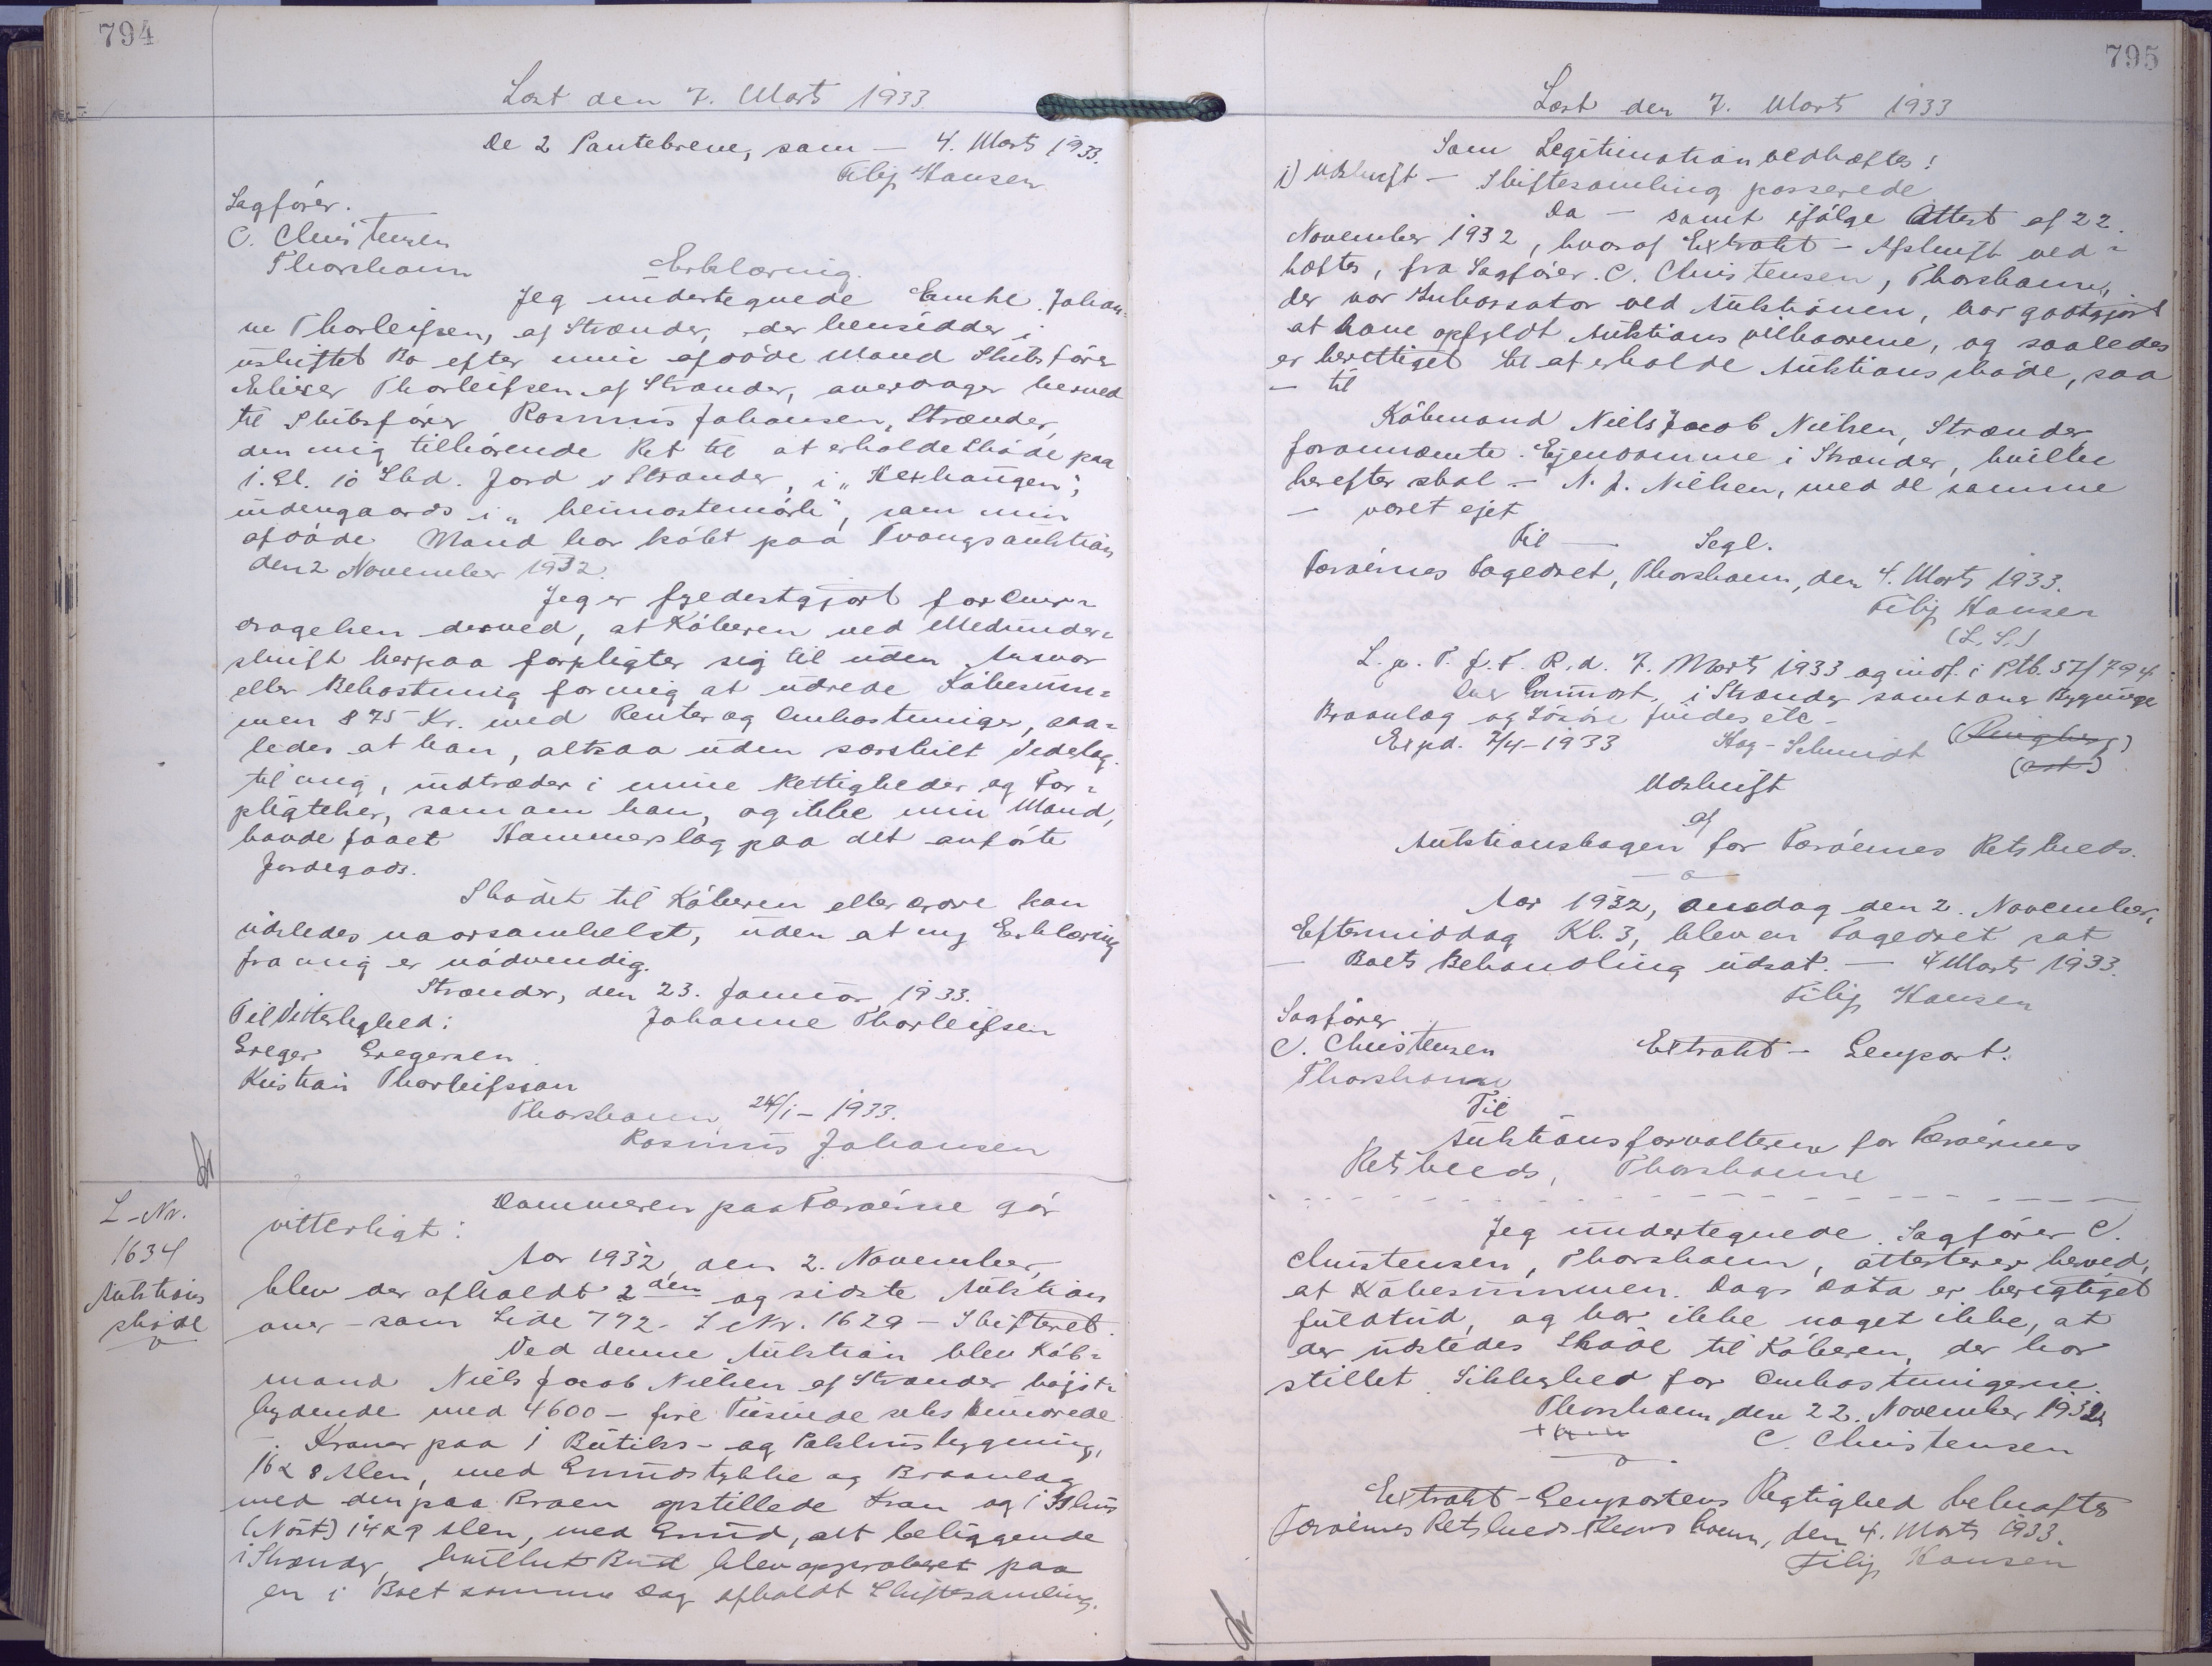 794
Læst den 7. Marts 1933
De 2 Pantebreve, som — 4. Marts 1933.
Filip Hansen
Sagfører.
C. Christensen
Thorshavn
Erklæring.
Jeg undertegnede Enke Johan-
ne Thorleifsen, af Strænder, der hensidder i
uskiftet Bo efter min afdøde Mand Skibsfører
Thorleifsen af Strænder, overdrager herved
til Skibsfører Rasmus Johansen, Strænder,
den mig tilhørende Ret til at erholde Skøde paa
1. Gl. 10 Skd. Jord i Strænder, i
indengaards i "heimastemørk", som min
afdøde Mand har købt paa Tvangsauktion
den 2 November 1932.
Jeg er fyldestgjort for Over-
dragelsen derved, at Køberen ved Medunder-
skrift herpaa forpligter sig til uden Ansvar
eller Bekostning for mig at udrede Købesum-
men 875 Kr. med Renter og Omkostninger, saa-
ledes at han, altsaa uden særskilt Vederlag
til mig, indtræder i mine Rettigheder og For-
pligtelser, som om han, og ikke min Mand,
havde faaet Hammerslag paa det anførte
Jordegods.
Skødet til Køberen eller Ordre kan
udstedes naarsomhelst, uden at ny Erklæring
fra mig er nødvendig.
Strænder, den 23. Januar 1933.
Til Vitterlighed: Johanne Thorleifsen
Greger Gregersen
Kristian Thorleifsson
Thorshavn 24/1 - 1933.
Rasmus Johansen
L-Nr.
1634
Auktions
skøde
Dommeren paa Færøerne gør
vitterligt:
Aar 1932, den 2. November,
blev der afholdt 2den og sidste Auktion
over - som Side 792 - L Nr. 1629 - Skifteret.
Ved denne Auktion blev Køb-
mand Niels Jacob Nielsen af Strænder højst-
bydende med 4600 - fire Tusinde seks Hundrede
- Kroner paa 1 Butiks- og Pakhusbygning,
16 x 8 Alen, med Grundstykke og Braanlæg
med den paa Broen opstillede Kran og 1 Ishus
(Nöst) 14 x 9 Alen, med Grund, alt beliggende
i Strænder, hvilket Bud blev approberet paa
en i Boet samme Dag afholdt Skiftesamling.
795
Læst den 7. Marts 1933
Som Legitimation vedhæftes:
1) Udskrift — Skiftesamling passerede
Da — samt ifølge Attest af 22.
November 1932, hvoraf Extrakt - Afskrift ved-
hæftes, fra Sagfører C. Christensen, Thorshavn,
der var Inkassator ved Auktionen, har godtgjort
at have opfyldt Auktionsvilkaarene, og saaledes
er berettiget til at erholde Auktionsskøde, saa
— til
Købmand Niels Jacob Nielsen, Strænder,
forannævnte Ejendomme i Strænder, hvilke
herefter skal — N. J. Nielsen, med de samme
— været ejet
Til — Segl.
Færøernes Fogedret, Thorshavn, den 4. Marts 1933.
Filip Hansen
(L.S.)
L. p. T. f. F. R. d. 7. Marts 1933 og indf. i Ptb. 57/794
i Strænder samt over Bygninge
Braanlæg og Løsøre findes etc -
Expd. 7/4-1933 Høg - Schmidt
Udskrift
af
Auktionsbogen for Færøernes Retskreds.
Aar 1932, onsdag den 2. November,
Eftermiddag Kl. 3, blev en Fogedret sat
— Boets Behandling udsat. — 4 Marts 1933.
Filip Hansen
Sagfører
C. Christensen
Thorshavn
Extrakt - Genpart.
Til
Auktionsforvalteren for Færøernes
Retskreds, Thorshavn
Jeg undertegnede Sagfører C.
Christensen, Thorshavn, attesterer herved,
at Købesummen Dags Dato er berigtiget
fuldtud, og har ikke noget ikke, at
der udstedes Skøde til Køberen, der har
stillet Sikkerhed for Omkostningerne.
Thorshavn, den 22. November 1932
C. Christensen
Extrakt-Genpartens Rigtighed bekræftes
Færøernes Retskreds Thorshavn, den 4. Marts 1933.
Filip Hansen